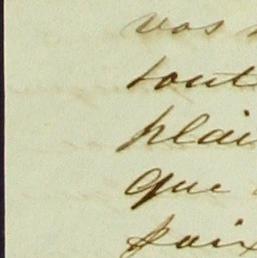 vos
tout
plai
que
paix